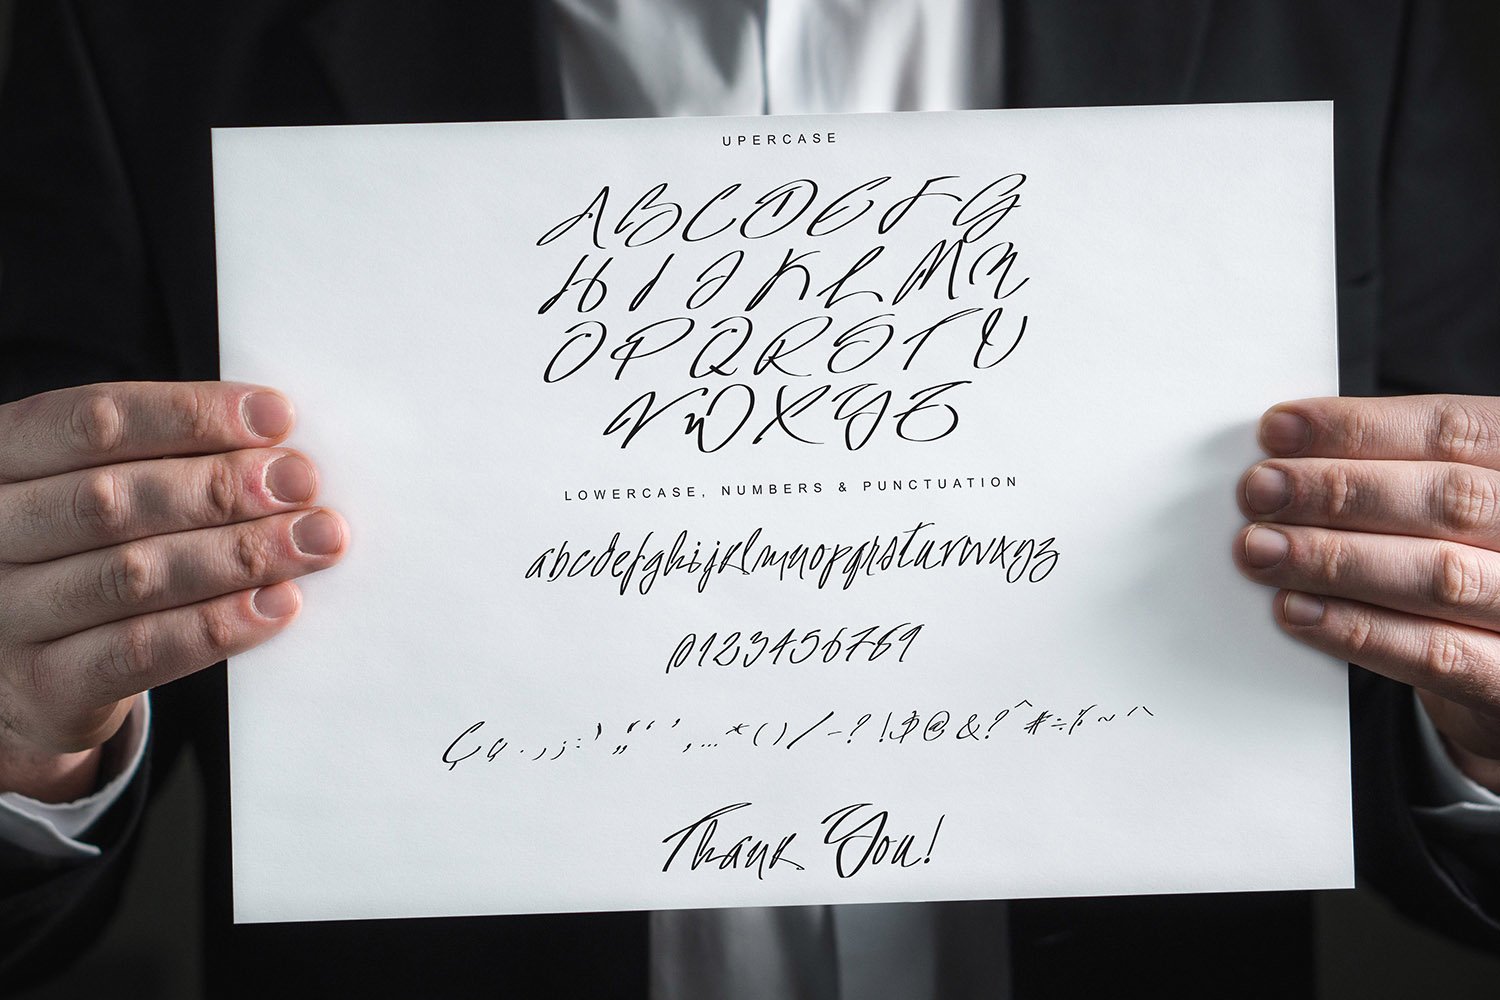 UPERCASE
ABCDEFG
HIJKLMN
OPQRSTU
VWXYZ
LOWERCASE, NUMBERS & PUNCTUATION
abcdefghijklmnopqrstuvwxyz
0123456789
Çç.,;:'„“‘’,...*()/-?!$@&?^#÷%~^
Thank You!